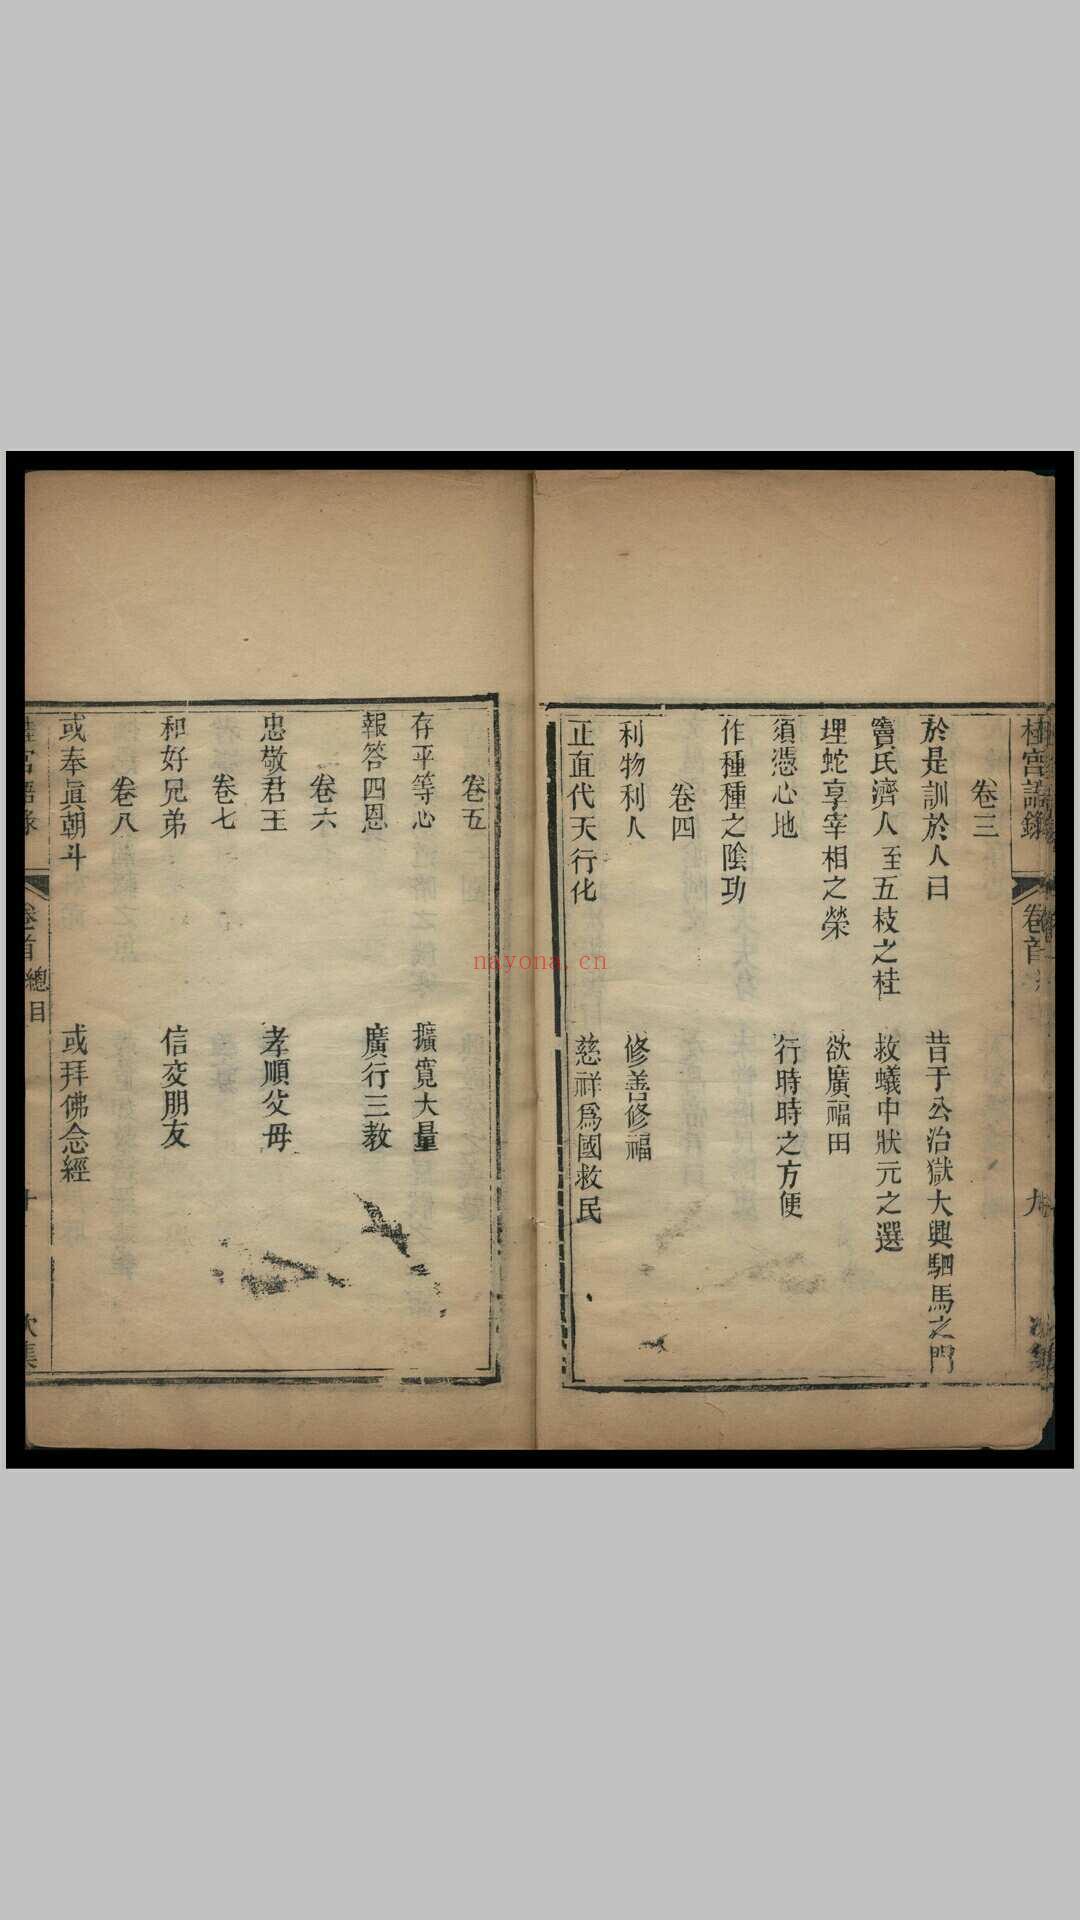 桂宮語錄 卷首 九
卷三
於是訓於人曰 昔于公治獄大興駟馬之門
竇氏濟人至五枝之桂 救蟻中狀元之選
埋蛇享宰相之榮 欲廣福田
須憑心地 行時時之方便
作種種之陰功
卷四
利物利人 修善修福
正直代天行化 慈祥爲國救民
卷五
存平等心 擴寬大量
報答四恩 廣行三教
卷六
忠敬君王 孝順父母
卷七
和好兄弟 信交朋友
卷八
或奉眞朝斗 或拜佛念經
宮語錄 卷首 總目 十
nayona.cn